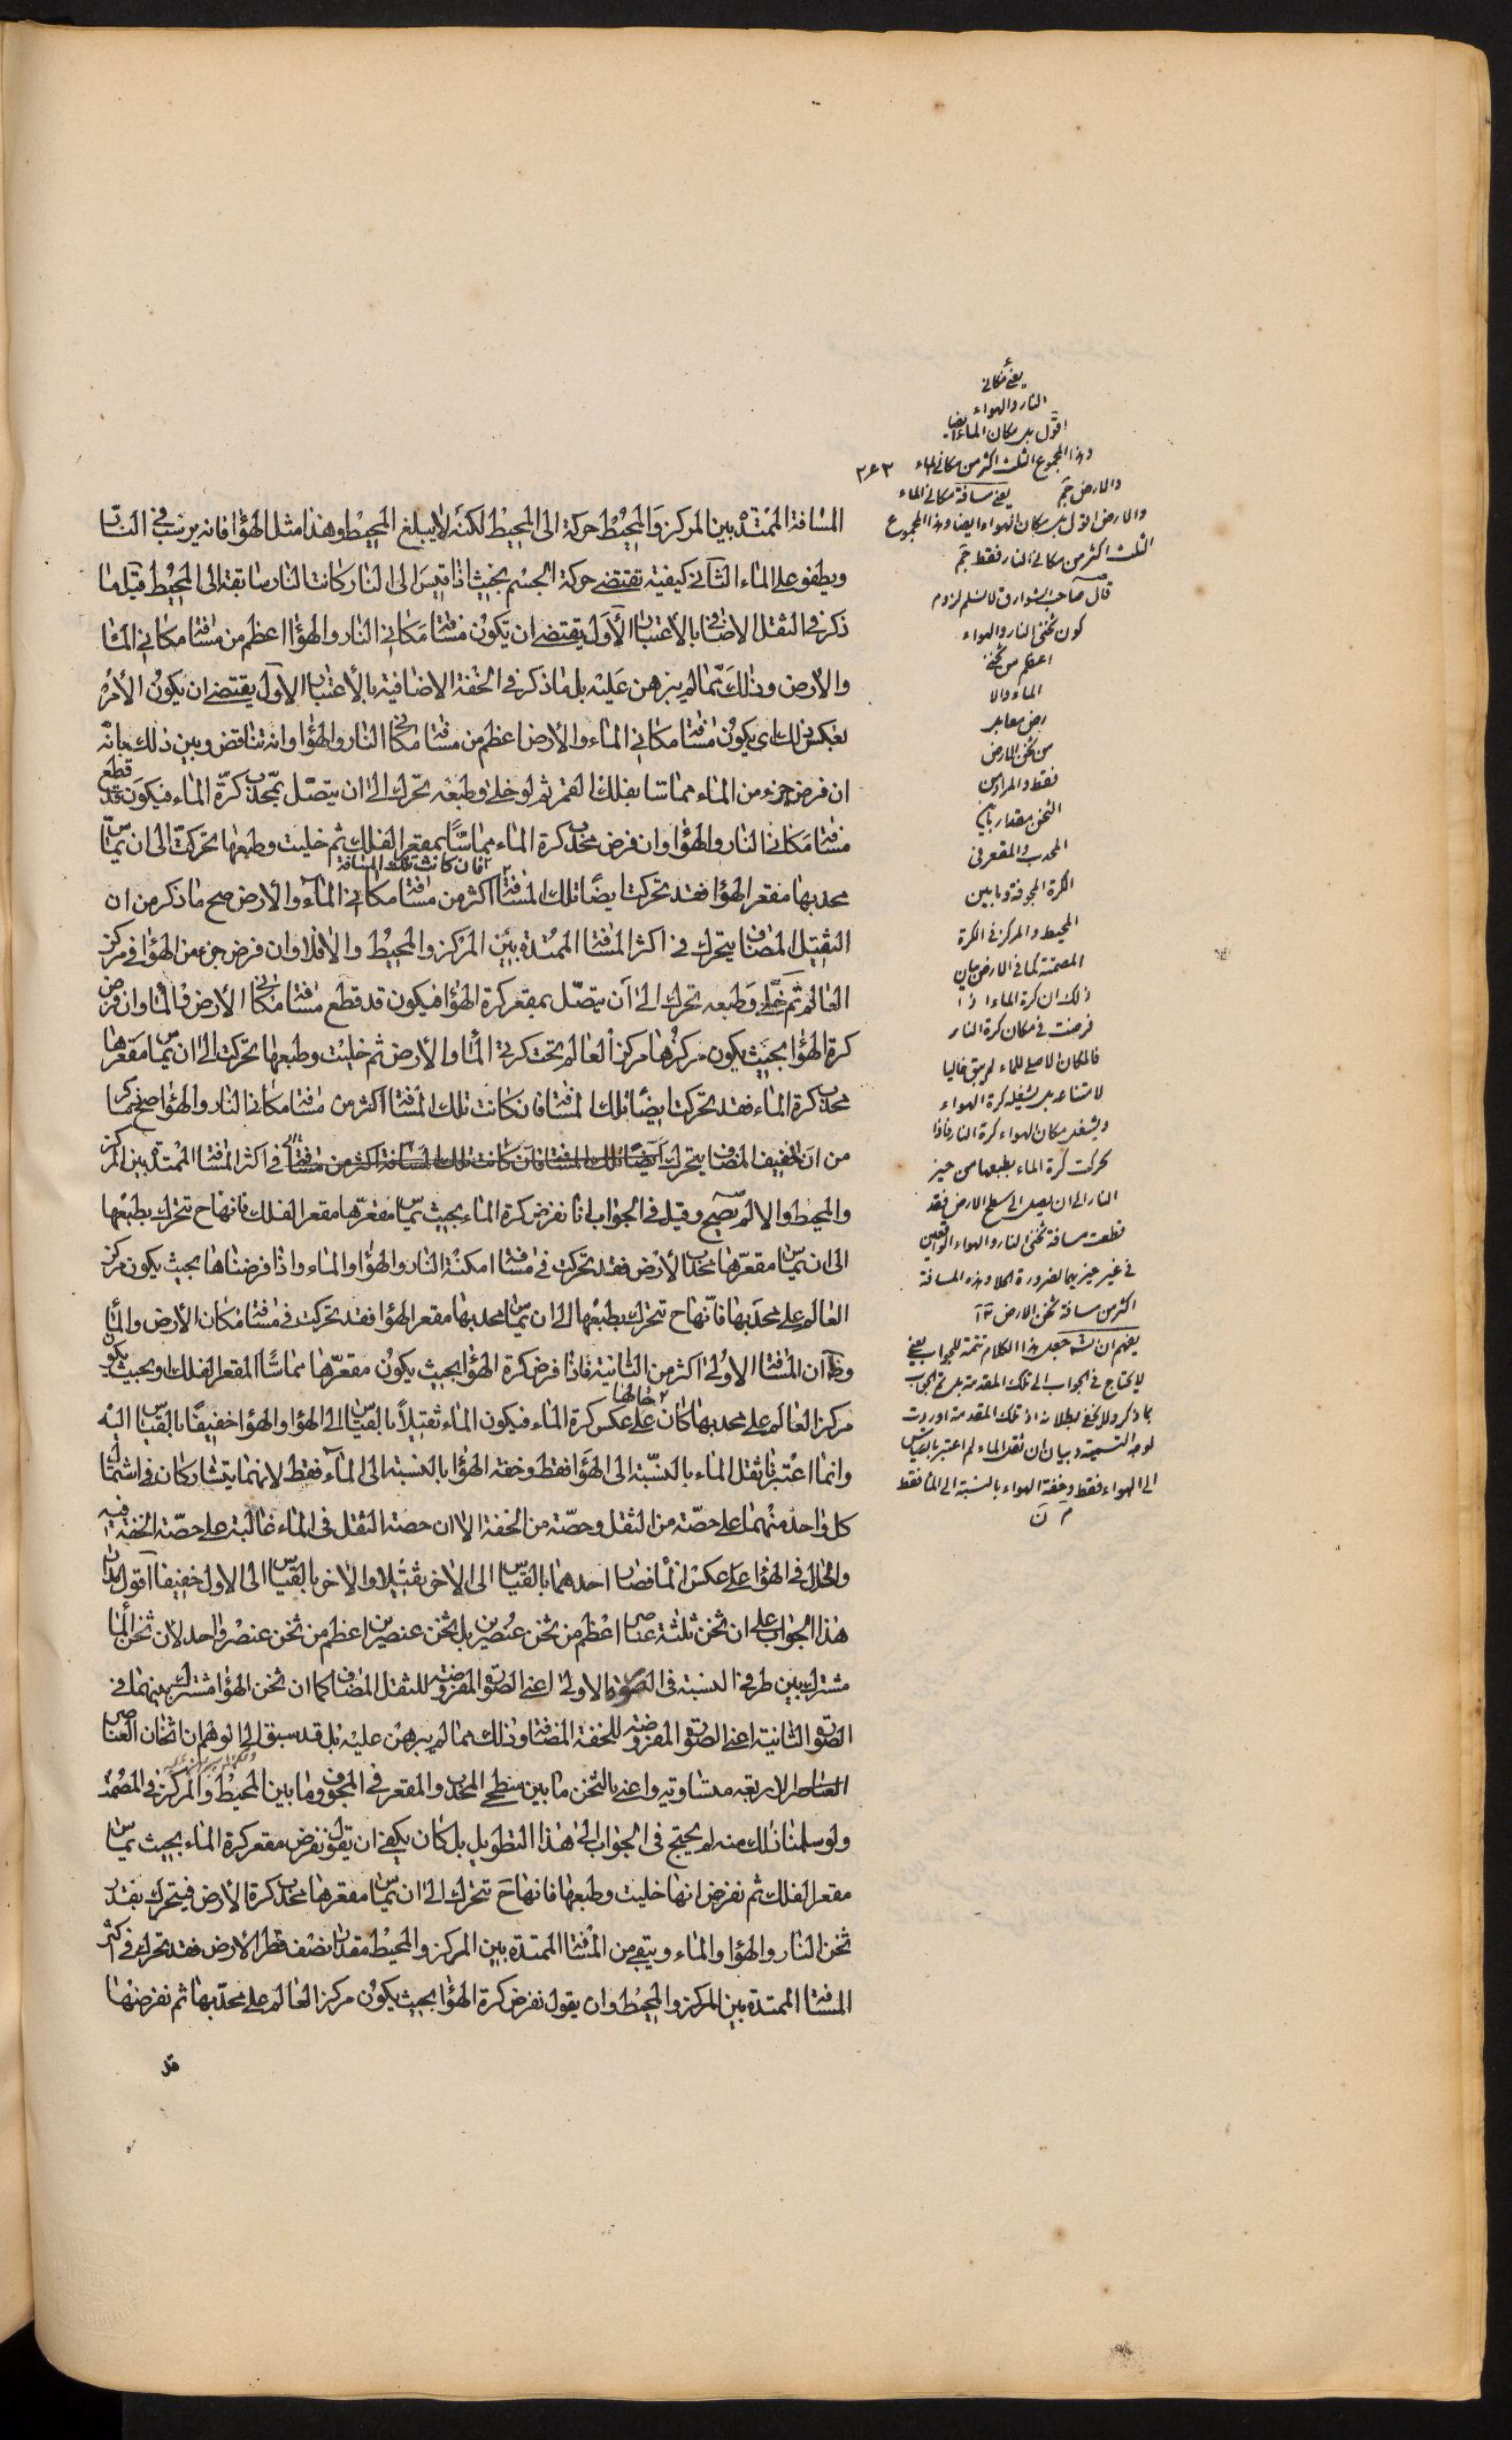 المسافة الممتدة بين المركز والمحيط حركة الى المحيط لكنه لا يبلغ المحيط وهذا مثل الهواء فانه يرسب في النار
ويطفو على الماء الثاني كيفية تقتضي حركة الجسم بحيث اذا قيس الى النار كانت النار سابقة الى المحيط قيل ما
ذكر في الثقل الاضافي بالاعتبار الاول يقتضي ان يكون مسافتا مكاني النار والهواء اعظم من مسافتا مكاني الماء
والارض وذلك مما لم يبرهن عليه بل ما ذكر في الخفة الاضافية بالاعتبار الاول يقتضي ان يكون الامر
بعكس ذلك اى يكون مسافتا مكاني الماء والارض اعظم من مسافتا مكاني النار والهواء وانه تناقض وبين ذلك بانه
ان فرض جزء من الماء مماسا بفلك القمر ثم لو خلى وطبعه تحرك الى ان يتصل بمحدب كرة الماء فيكون قد قطع
مسافتا مكاني النار والهواء وان فرض محدب كرة الماء مماسا بمقعر الفلك ثم خليت وطبعها تحركت الى ان تماس
فان كانت تلك المسافة
محدبها مقعر الهواء فقد تحركت ايضا تلك المسافة اكثر من مسافتا مكاني الماء والارض صح ما ذكر من ان
الثقيل المضاف يتحرك في اكثر المسافة الممتدة بين المركز والمحيط والا فلا وان فرض جزء من الهواء في مركز
العالم ثم خلى وطبعه تحرك الى ان يتصل بمقعر كرة الهواء فيكون قد قطع مسافتا مكاني الارض والماء وان فرض
كرة الهواء بحيث يكون مركزها مركز العالم تحت كرتي الماء والارض ثم خليت وطبعها تحركت الى ان تماس مقعرها
محدب كرة الماء فقد تحركت ايضا تلك المسافة فان كانت تلك المسافة اكثر من مسافتا مكاني النار والهواء صح ما ذكر
من ان الخفيف المضاف يتحرك ايضا تلك المسافة فان كانت تلك المسافة اكثر من مسافتا في اكثر المسافة الممتدة بين المركز
والمحيط والا لم يصح وقيل في الجواب انا نفرض كرة الماء بحيث تماس مقعرها مقعر الفلك فانها ح تتحرك بطبعها
الى ان تماس مقعرها محدب الارض فقد تحركت في مسافة امكنة النار والهواء والماء واذا فرضناها بحيث يكون مركز
العالم على محدبها فانها ح تتحرك بطبعها الى ان تماس محدبها مقعر الهواء فقد تحركت في مسافتا مكان الارض والماء
وظ ان المسافة الاولى اكثر من الثانية فاذا فرض كرة الهواء بحيث يكون مقعرها مماسا المقعر الفلك وبحيث يكون
مركز العالم على محدبها كان حالها على عكس كرة الماء فيكون الماء ثقيلا بالقياس الى الهواء والهواء خفيفا بالقياس اليه
وانما اعتبرنا ثقل الماء بالنسبة الى الهواء فقط وخفة الهواء بالنسبة الى الماء فقط لانهما يتشاركان في اشتمال
كل واحد منهما على حصة من الثقل وحصة من الخفة الا ان حصة الثقل في الماء غالبة على حصة الخفة فيه
والحال في الهواء على عكس الماء فصار احدهما بالقياس الى الاخر ثقيلا والاخر بالقياس الى الاول خفيفا اقول بناء
هذا الجواب على ان ثخن ثلثة عناصر اعظم من ثخن عنصرين بل ثخن عنصرين اعظم من ثخن عنصر واحد لان ثخن الماء
مشترك بين طرفي النسبة في الصورة الاولى اعني الصورة المفروضة للثقل المضاف كما ان ثخن الهواء مشترك بينهما في
الصورة الثانية اعني الصورة المفروضة للخفة المضافة وذلك مما لم يبرهن عليه بل قد سبق الى الوهم ان اثخان العناصر
العناصر الاربعة متساوية واعني بالثخن ما بين سطحي المحدب والمقعر في المجوف وما بين المحيط والمركز في المصمت
ولو سلمنا ذلك منه لم يحتج في الجواب الى هذا التطويل بل كان يكفي ان يقول نفرض مقعر كرة الماء بحيث تماس
مقعر الفلك ثم نفرض انها خليت وطبعها فانها ح تتحرك الى ان تماس مقعرها محدب كرة الارض فيتحرك بقدر
ثخن النار والهواء والماء ويبقى من المسافة الممتدة بين المركز والمحيط مقدار نصف قطر الارض فقد تحرك في اكثر
المسافة الممتدة بين المركز والمحيط وان يقول نفرض كرة الهواء بحيث يكون مركز العالم على محدبها ثم نفرضها
قد
يعني مكاني
النار والهواء
اقول بل مكان الماء ايضا
وهذا المجموع الثلث اكثر من مكاني الماء
والارض جم
يعني مسافة مكاني الماء
والارض اقول بل مكان الهواء ايضا وهذا المجموع
الثلث اكثر من مكاني النار فقط جم
قال صاحب الشوارق لا نسلم لزوم
كون ثخني النار والهواء
اعظم من ثخني
الماء والا
رض معا بل
من ثخن الارض
فقط والمراد من
الثخن مقدار ما بين
المحدب والمقعر في
الكرة المجوفة وما بين
المحيط والمركز في الكرة
المصمتة كما في الارض بيان
ذلك ان كرة الماء اذا
فرضت في مكان كرة النار
فالمكان الاصلي للماء لم يبق خاليا
لامتناعه بل يشغله كرة الهواء
ويشغل مكان الهواء كرة النار فاذا
تحركت كرة الماء بطبعها من حيز
النار الى ان يصل الى سطح الارض فقد
قطعت مسافة ثخني النار والهواء الواقعين
في غير حيزيهما لضرورة الخلا وهذه المسافة
اكثر من مسافة ثخن الارض
يفهم ان الش جعل هذا الكلام تتمة للجواب يعني
لا يحتاج في الجواب الى تلك المقدمة بل تم الجواب
بما ذكر ولا يخفى بطلانه اذ تلك المقدمة اوردت
لوجه التسمية وبيان ان ثقل الماء لم اعتبر بالقياس
الى الهواء فقط وخفة الهواء بالنسبة الى الماء فقط
م ن